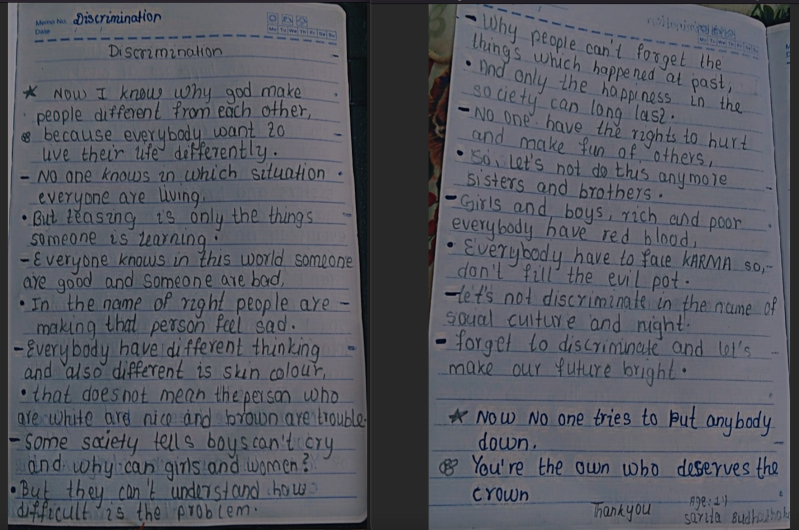 Memo No. Discrimination
Date
Mo Tu We Th Fr Sa Su
Discrimination
★ Now I know why god make
people different from each other,
because everybody want to
live their life differently.
- No one knows in which situation
everyone are living.
• But teasing is only the things
someone is learning.
- Everyone knows in this world someone
are good and someone are bad,
• In the name of right people are
making that person feel sad.
- Everybody have different thinking
and also different is skin colour,
• that does not mean the person who
are white are nice and brown are trouble.
- Some society tells boys can't cry
and why can girls and women?
• But they can't understand how
difficult is the problem.
- Why people can't forget the
things which happened at past,
• And only the happiness in the
society can long last.
- No one have the rights to hurt
and make fun of others,
• So, let's not do this anymore
sisters and brothers.
- Girls and boys, rich and poor
everybody have red blood,
• Everybody have to face KARMA so,
don't fill the evil pot.
- let's not discriminate in the name of
culture and night.
- forget to discriminate and let's
make our future bright.
★ Now No one tries to put anybody
down.
You're the own who deserves the
crown
Thankyou
Age:
Sarita